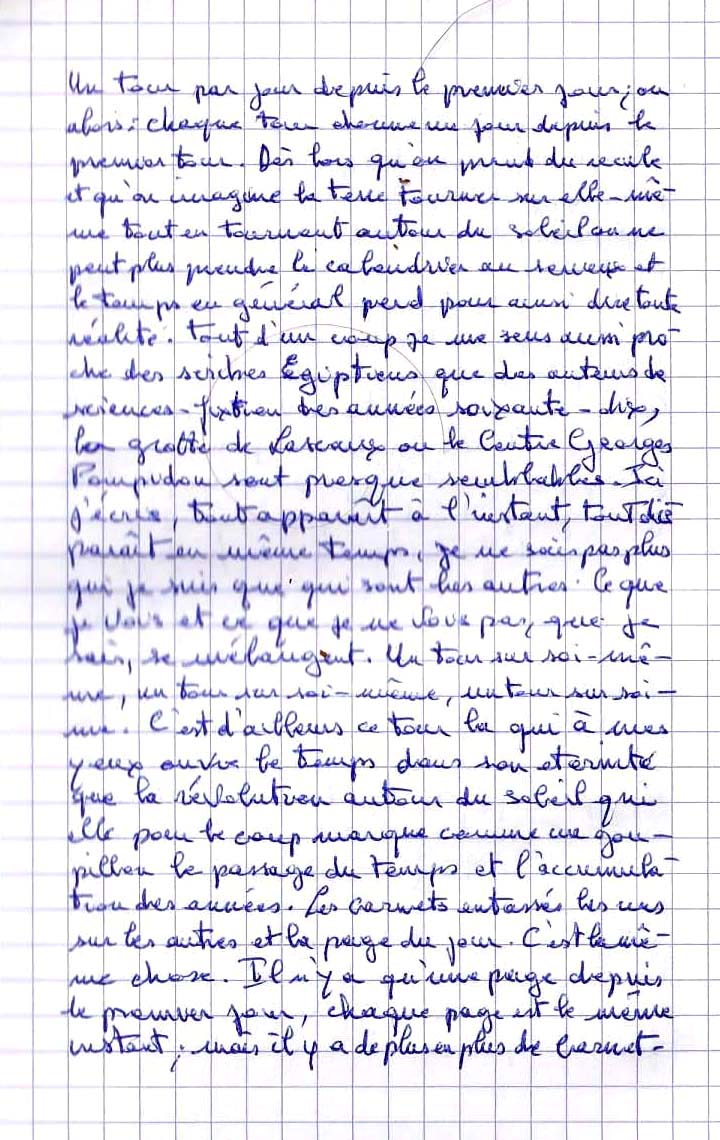 Un tour par jour depuis le premier jour; ou
alors: chaque tour donne un jour depuis le
premier tour. Dès lors qu'on prend du recule
et qu'on imagine la terre tourner sur elle-mê-
me tout en tournant autour du soleil on ne
peut plus prendre le calendrier au serieux et
le temps en général perd pour ainsi dire toute
réalité. Tout d'un coup je me sens aussi pro-
che des scribes Egiptiens que des auteurs de
sciences-fixtion des années soixante-dix,
la grotte de Lascaux ou le Centre Georges
Pompidou sont presque semblables. Ici
j'écris, tout apparaît à l'instant, tout dis-
paraît en même temps, je ne sais pas plus
qui je suis que qui sont les autres. Ce que
je vois et ce que je ne vois pas, que je
sais, se mélangent. Un tour sur soi-mê-
me, un tour sur soi-même, un tour sur soi-
me. C'est d'ailleurs ce tour la qui à mes
yeux ouvre le temps dans son eternité
que la révolution autour du soleil qui
elle pour le coup marque comme une gou-
pillon le passage du temps et l'accumula-
tion des années. Les carnets entassés les uns
sur les autres et la page du jour. C'est la mê-
me chose. Il n'y a qu'une page depuis
le premier jour, chaque page est le même
instant; mais il y a de plus en plus de carnet.